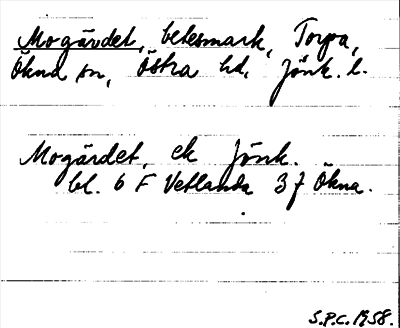 Mogärdet, betesmark, Torpa,
Ökna sn, Östra hd, Jönk. l.
Mogärdet, ek Jönk.
bl. 6 F Vetlanda 3 f Ökna.
S.P.C. 1958.